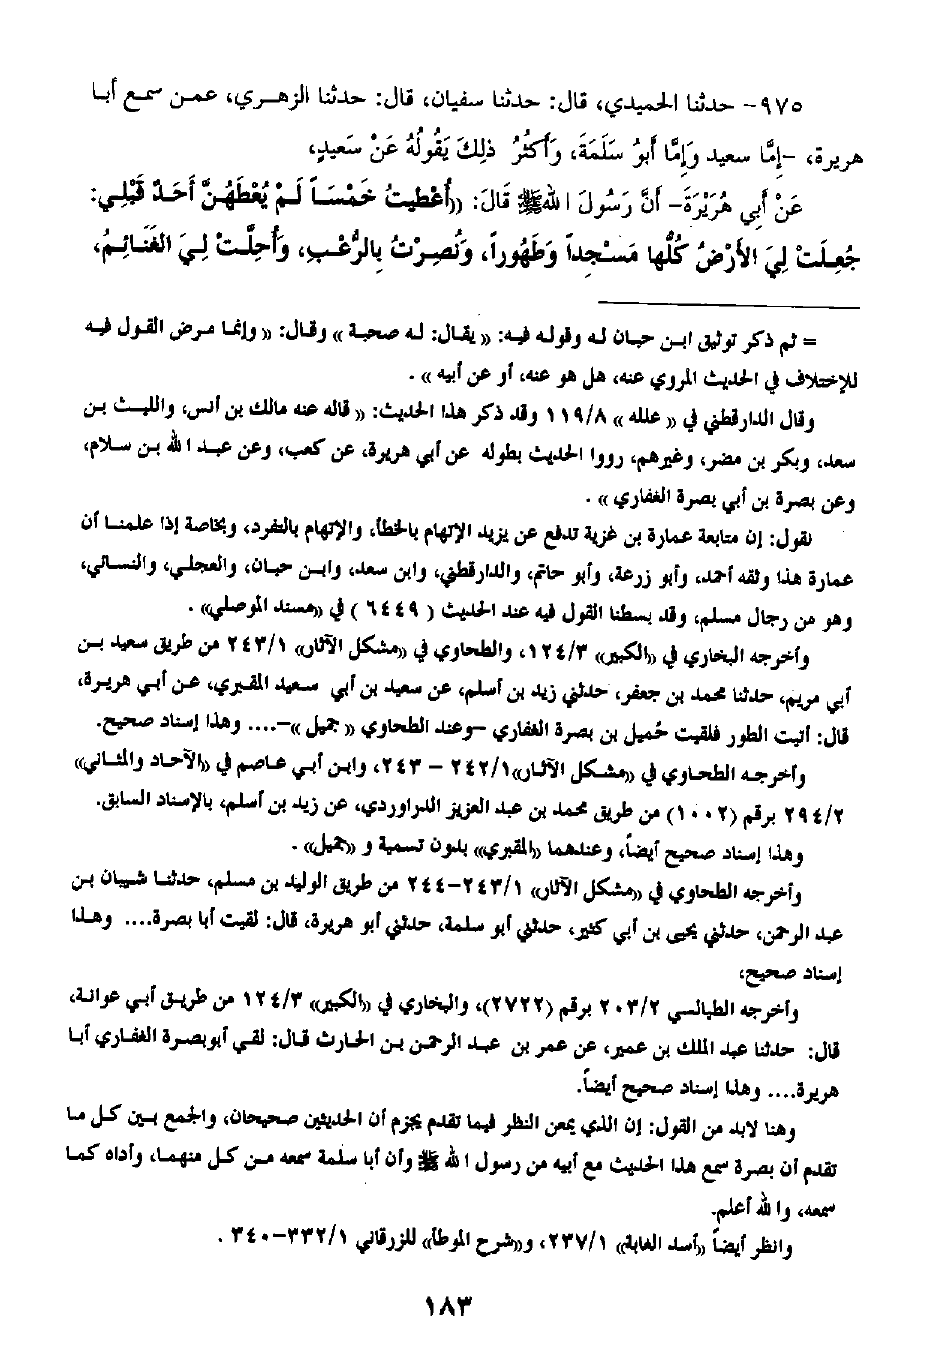 ٩٧٥- حدثنا الحميدي، قال: حدثنا سفيان، قال: حدثنا الزهري، عمن سمع أبا
هريرة، -إمَّا سعيد وَإمَّا أَبُو سَلَمَةَ، وَأَكْثَرُ ذلِكَ يَقُولُهُ عَنْ سَعيدٍ،
عَنْ أَبِي هُرَيْرَةَ- أَنَّ رَسُولَ اللهِ ﷺ قَالَ: ((أُعْطِيتُ خَمْسَاً لَمْ يُعْطَهُنَّ أَحَدٌ قَبْلِي:
جُعِلَتْ لِيَ الأَرْضُ كُلُّها مَسْجِداً وَطَهُوراً، وَنُصِرْتُ بِالرُّعْبِ، وَأُحِلَّتْ لِيَ الغَنَائِمُ،
= ثم ذكر توثيق ابن حبان له وقوله فيه: « يقال: له صحبة » وقال: « وإنما مرض القول فيه
للإختلاف في الحديث المروي عنه، هل هو عنه، أو عن أبيه » .
وقال الدارقطني في « علله » ١١٩/٨ وقد ذكر هذا الحديث: « قاله عنه مالك بن أنس، والليث بن
سعد، وبكر بن مضر، وغيرهم، رووا الحديث بطوله عن أبي هريرة، عن كعب، وعن عبد الله بن سلام،
وعن بصرة بن أبي بصرة الغفاري » .
نقول: إن متابعة عمارة بن غزية تدفع عن يزيد الإتهام بالخطأ، والإتهام بالتفرد، وبخاصة إذا علمنا أن
عمارة هذا وثقه أحمد، وأبو زرعة، وأبو حاتم، والدارقطني، وابن سعد، وابن حبان، والعجلي، والنسائي،
وهو من رجال مسلم، وقد بسطنا القول فيه عند الحديث ( ٦٤٤٩ ) في ((مسند الموصلي)) .
وأخرجه البخاري في ((الكبير)) ١٢٤/٣، والطحاوي في ((مشكل الآثار)) ٢٤٣/١ من طريق سعيد بن
أبي مريم، حدثنا محمد بن جعفر، حدثني زيد بن أسلم، عن سعيد بن أبي سعيد المقبري، عن أبي هريرة،
قال: أتيت الطور فلقيت حُميل بن بصرة الغفاري -وعند الطحاوي « جميل »-.... وهذا إسناد صحيح.
وأخرجه الطحاوي في ((مشكل الآثار))٢٤٢/١ - ٢٤٣، وابن أبي عاصم في ((الآحاد والمثاني))
٢٩٤/٢ برقم (١٠٠٢) من طريق محمد بن عبد العزيز الدراوردي، عن زيد بن أسلم، بالإسناد السابق.
وهذا إسناد صحيح أيضاً، وعندهما ((المقبري)) بدون تسمية و ((جميل)) .
وأخرجه الطحاوي في ((مشكل الآثار)) ٢٤٣/١-٢٤٤ من طريق الوليد بن مسلم، حدثنا شيبان بن
عبد الرحمن، حدثني يحيى بن أبي كثير، حدثني أبو سلمة، حدثني أبو هريرة، قال: لقيت أبا بصرة.... وهذا
إسناد صحيح،
وأخرجه الطيالسي ٢٠٣/٢ برقم (٢٧٢٢)، والبخاري في ((الكبير)) ١٢٤/٣ من طريق أبي عوانة،
قال: حدثنا عبد الملك بن عمير، عن عمر بن عبد الرحمن بن الحارث قال: لقي أبوبصرة الغفاري أبا
هريرة.... وهذا إسناد صحيح أيضاً.
وهنا لابد من القول: إن الذي يمعن النظر فيما تقدم يجزم أن الحديثين صحيحان، والجمع بين كل ما
تقدم أن بصرة سمع هذا الحديث مع أبيه من رسول الله ﷺ وأن أبا سلمة سمعه من كل منهما، وأداه كما
سمعه، والله أعلم.
وانظر أيضاً ((أسد الغابة)) ٢٣٧/١، و((شرح الموطأ)) للزرقاني ٣٣٢/١-٣٤٠ .
١٨٣